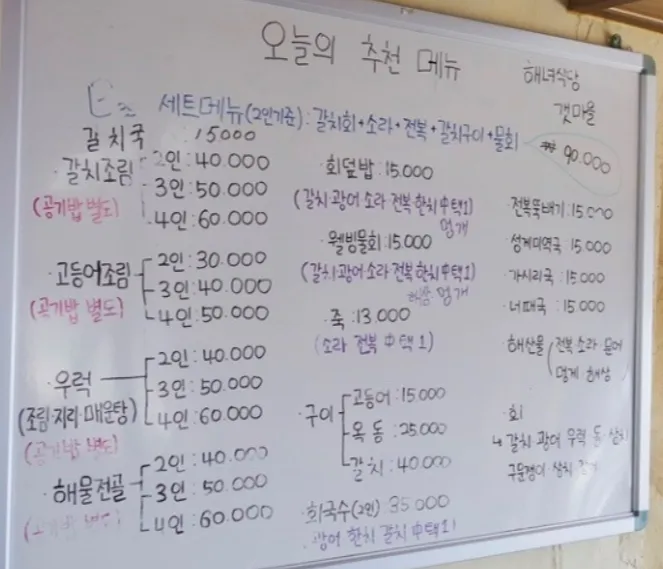 오늘의 추천 메뉴
해녀식당
갯마을
세트메뉴(2인기준) : 갈치회+소라+전복+갈치구이+물회
90.000
갈치국 15.000
갈치조림 2인:40.000
3인:50.000
4인:60.000
(공기밥 별도)
고등어조림 2인:30.000
3인:40.000
4인:50.000
(공기밥 별도)
우럭 2인:40.000
3인:50.000
4인:60.000
(조림·지리·매운탕)
(공기밥 별도)
해물전골 2인:40.000
3인:50.000
4인:60.000
(공기밥 별도)
·회덮밥:15.000
(갈치 광어 소라 전복 한치 中 택1)
멍개
·웰빙물회:15.000
(갈치 광어 소라 전복 한치 中 택1)
해삼 멍개
·죽:13.000
(소라 전복 中 택1)
·구이 고등어:15.000
옥동:25.000
갈치:40.000
·회국수(2인) 35.000
광어 한치 갈치 中 택1
·전복뚝배기:15.000
·성게미역국:15.000
·가시리국:15.000
·너패국:15.000
·해산물(전복·소라·문어
멍게·해삼
·회
갈치·광어 우럭 돔·삼치
구문쟁이